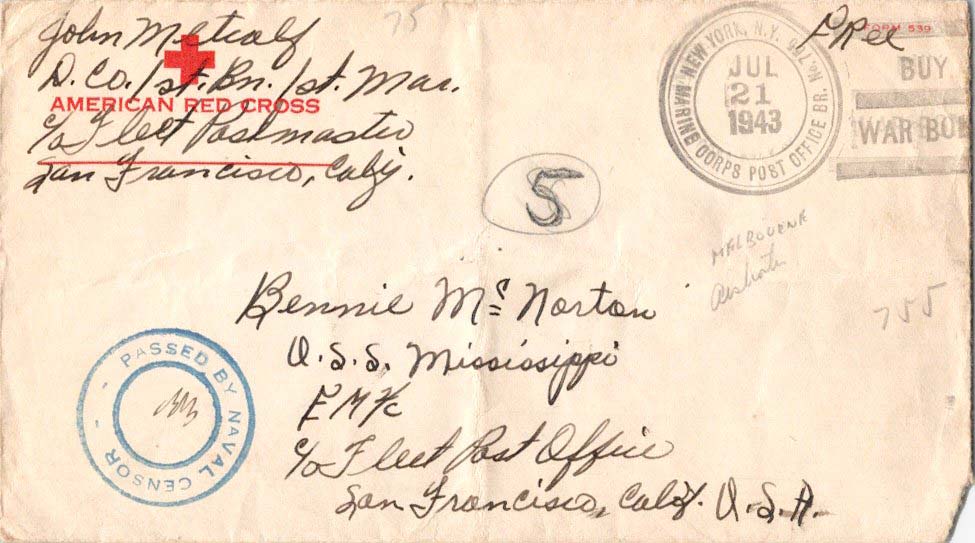 John Metcalf
D. Co. 1st. Bn. 1st. Mar.
AMERICAN RED CROSS
c/o Fleet Postmaster
San Francisco, Calif.
75
NEW YORK, N.Y.
MARINE CORPS POST OFFICE BR.
JUL
21
1943
Free
FORM 539
BUY
WAR BON
5
MELBOURNE
Australia
755
Bennie McNorton
U.S.S. Mississippi
c/o Fleet Post Office
San Francisco, Calif. U.S.A.
PASSED BY NAVAL CENSOR